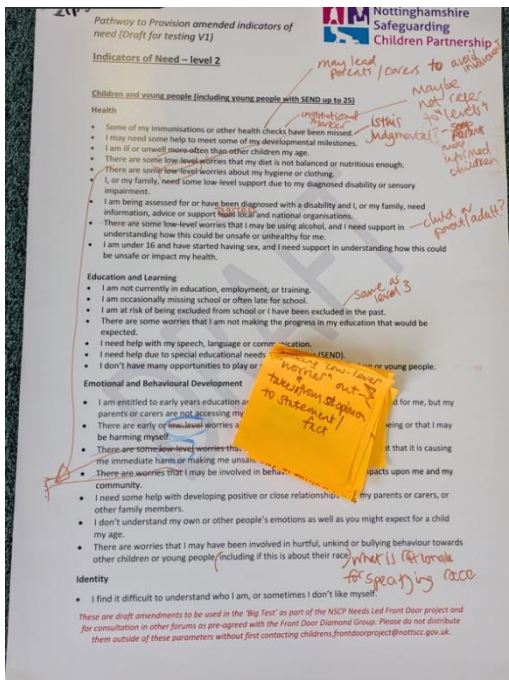 Pathway to Provision amended indicators of
need (Draft for testing V1)
Nottinghamshire
Safeguarding
Children Partnership
Indicators of Need – level 2
may lead
parents/carers to avoid
Children and young people (including young people with SEND up to 25)
Maybe
not refer
to "levels"
Health
institutional
marker
is this
judgmental?
parent
informed
children
Some of my immunisations or other health checks have been missed
I may need some help to meet some of my developmental milestones.
I am ill or unwell more often than other children my age.
There are some low-level worries that my diet is not balanced or nutritious enough.
There are some low-level worries about my hygiene or clothing.
I, or my family, need some low-level support due to my diagnosed disability or sensory
impairment.
I am being assessed for or have been diagnosed with a disability and I, or my family, need
information, advice or support from local and national organisations.
There are some low-level worries that I may be using alcohol, and I need support in
understanding how this could be unsafe or unhealthy for me.
child or
parent/adult?
I am under 16 and have started having sex, and I need support in understanding how this could
be unsafe or impact my health.
DRAFT
Education and Learning
same as
level 3
I am not currently in education, employment, or training.
I am occasionally missing school or often late for school.
I am at risk of being excluded from school or I have been excluded in the past.
There are some worries that I am not making the progress in my education that would be
expected.
I need help with my speech, language or communication.
I need help due to special educational needs (SEND).
I don't have many opportunities to play or or young people.
low-level
worries" out →
takes from opinion
to statement/
fact
Emotional and Behavioural Development
I am entitled to early years education a d for me, but my
parents or carers are not accessing my
There are early or low-level worries a eing or that I may
be harming myself.
There are some low-level worries tha t that it is causing
me immediate harm or making me unsa
There are worries that I may be involved in beha pacts upon me and my
community.
I need some help with developing positive or close relationships my parents or carers, or
other family members.
I don't understand my own or other people's emotions as well as you might expect for a child
my age.
There are worries that I may have been involved in hurtful, unkind or bullying behaviour towards
other children or young people (including if this is about their race)
what is rationale
for specifying race
Identity
I find it difficult to understand who I am, or sometimes I don't like myself.
These are draft amendments to be used in the 'Big Test' as part of the NSCP Needs Led Front Door project and
for consultation in other forums as pre-agreed with the Front Door Diamond Group. Please do not distribute
them outside of these parameters without first contacting childrens.frontdoorproject@nottscc.gov.uk.